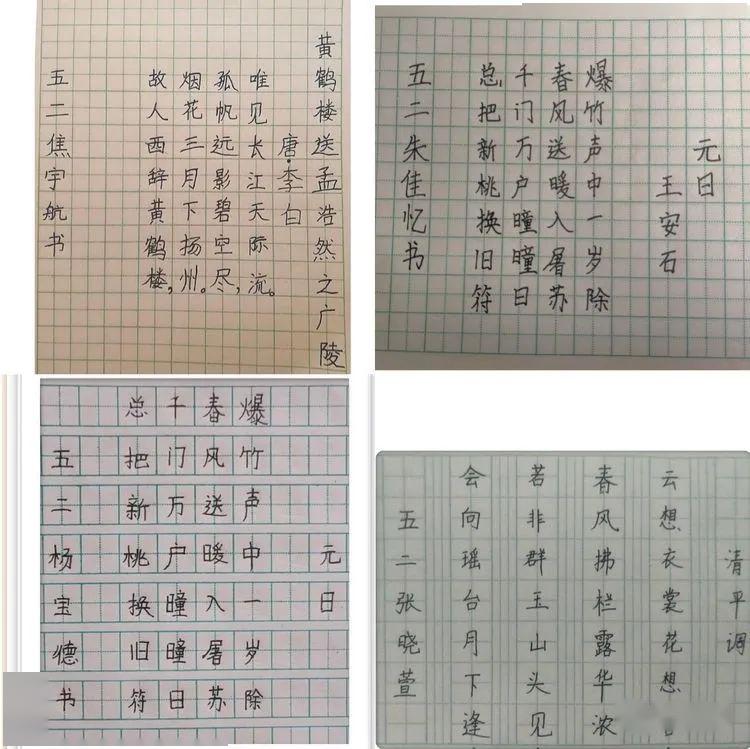 黄鹤楼送孟浩然之广陵
唐·李白
唯见长江天际流。
孤帆远影碧空尽,
烟花三月下扬州。
故人西辞黄鹤楼,
五二焦宇航书
元日
王安石
爆竹声中一岁除
春风送暖入屠苏
千门万户瞳瞳日
总把新桃换旧符
五二朱佳忆书
元日
爆竹声中一岁除
春风送暖入屠苏
千门万户瞳瞳日
总把新桃换旧符
五二杨宝德书
清平调
云想衣裳花想
春风拂栏露华浓
若非群玉山头见
会向瑶台月下逢
五二张晓萱